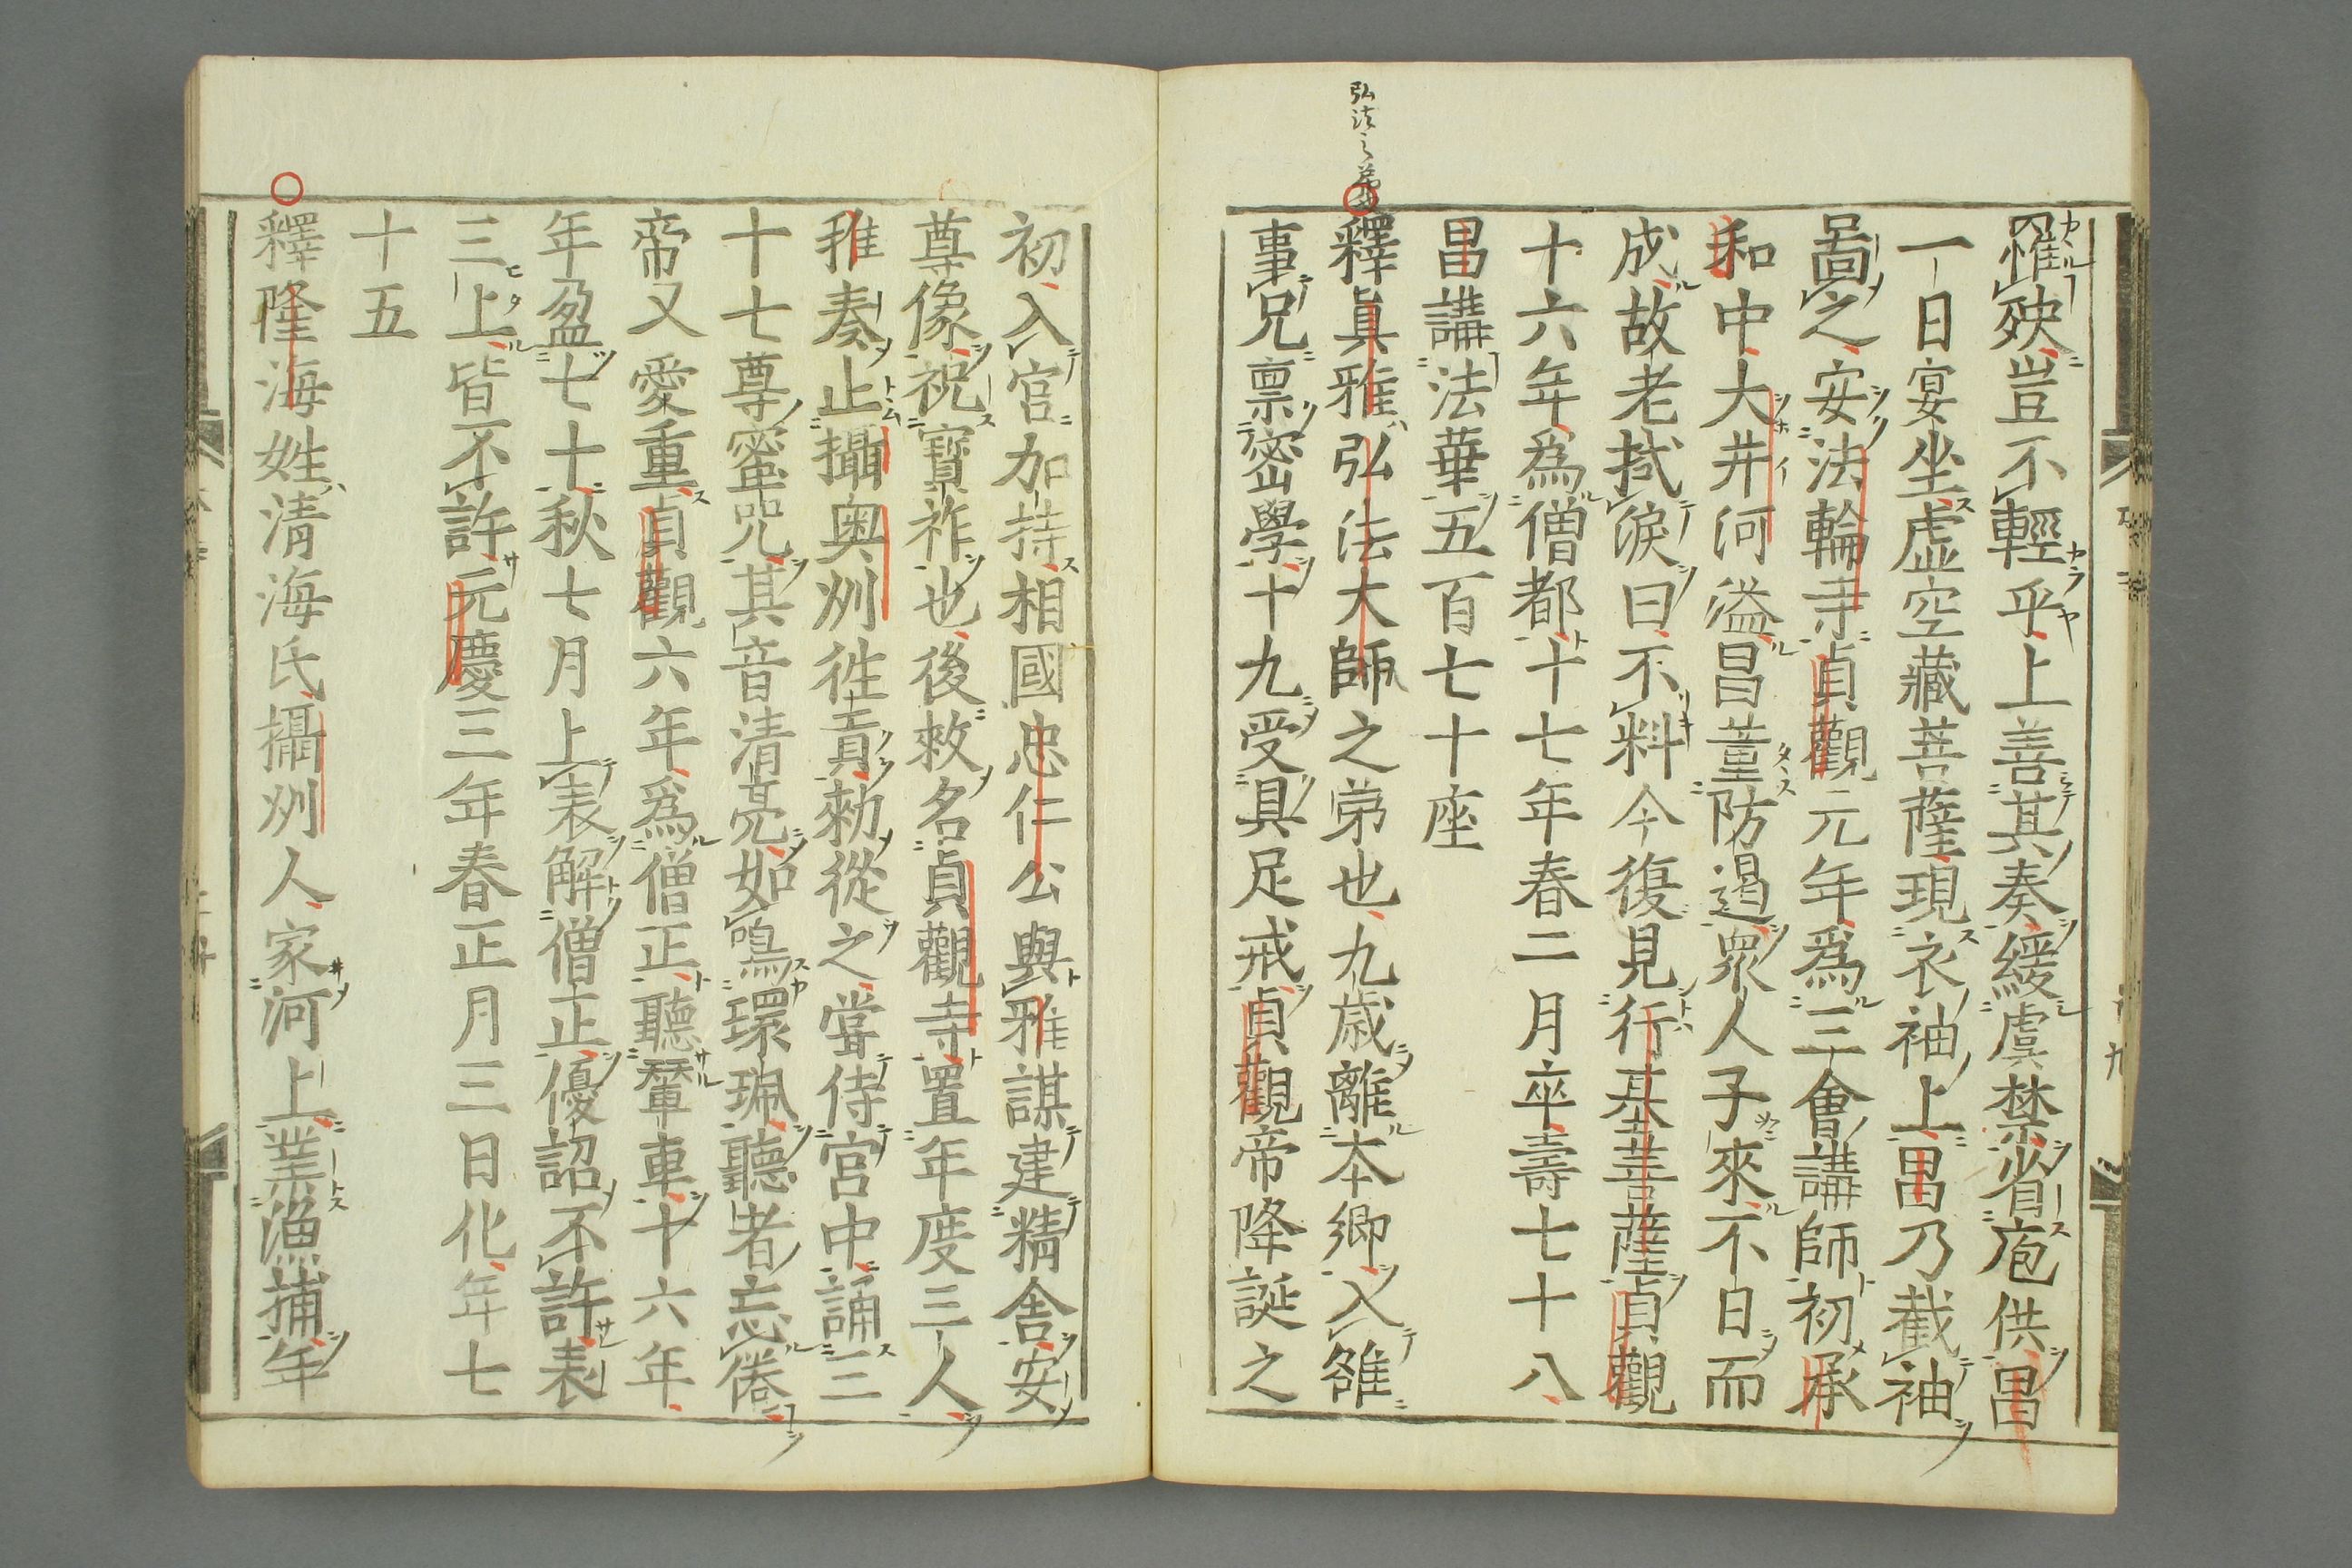 弘法之弟
罹殃豈不輕乎上善其奏緩虞禁省庖供昌
一日宴坐虛空藏菩薩現衣袖上昌乃截袖
啚之安法輪寺貞觀元年爲三會講師初承
和中大井河溢昌董防遏衆人子來不日而
成故老拭淚曰不料今復見行基菩薩貞觀
十六年爲僧都十七年春二月卒壽七十八
昌講法華五百七十座
釋眞雅弘法大師之弟也九歳離本鄉入雒
事兄禀密學十九受具足戒貞觀帝降誕之
初入宮加持相國忠仁公與雅謀建精舍安
尊像祝寳祚也後敕名貞觀寺置年度三人
雅奏止攝奥州徃責勑從之甞侍宮中誦三
十七尊蜜咒其音清亮如鳴環珮聽者忘倦
帝又愛重貞觀六年爲僧正聽輦車十六年
年盈七十秋七月上表解僧正優詔不許表
三上皆不許元慶三年春正月三日化年七
十五
釋隆海姓清海氏攝州人家河上業漁捕年